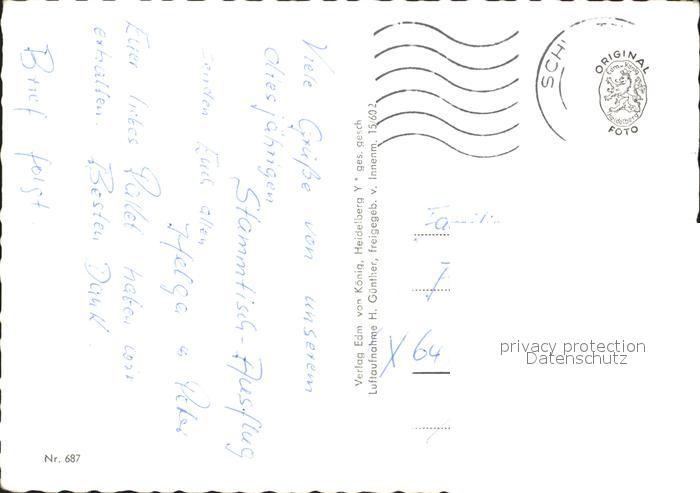 Viele Grüße von unserem
diesjährigen
Stammtisch-Ausflug
senden Euch allen
Helga u Peter
Euer liebes Paket haben wir
erhalten. Besten Dank.
Brief folgt.
Verlag Edm von König, Heidelberg Y * ges. gesch
Luftaufnahme H. Günther, freigegeb. v. Innenm. 15/602
SCH
ORIGINAL
Edm. König
Heidelberg
FOTO
Familie
X 64
privacy protection
Datenschutz
Nr. 687